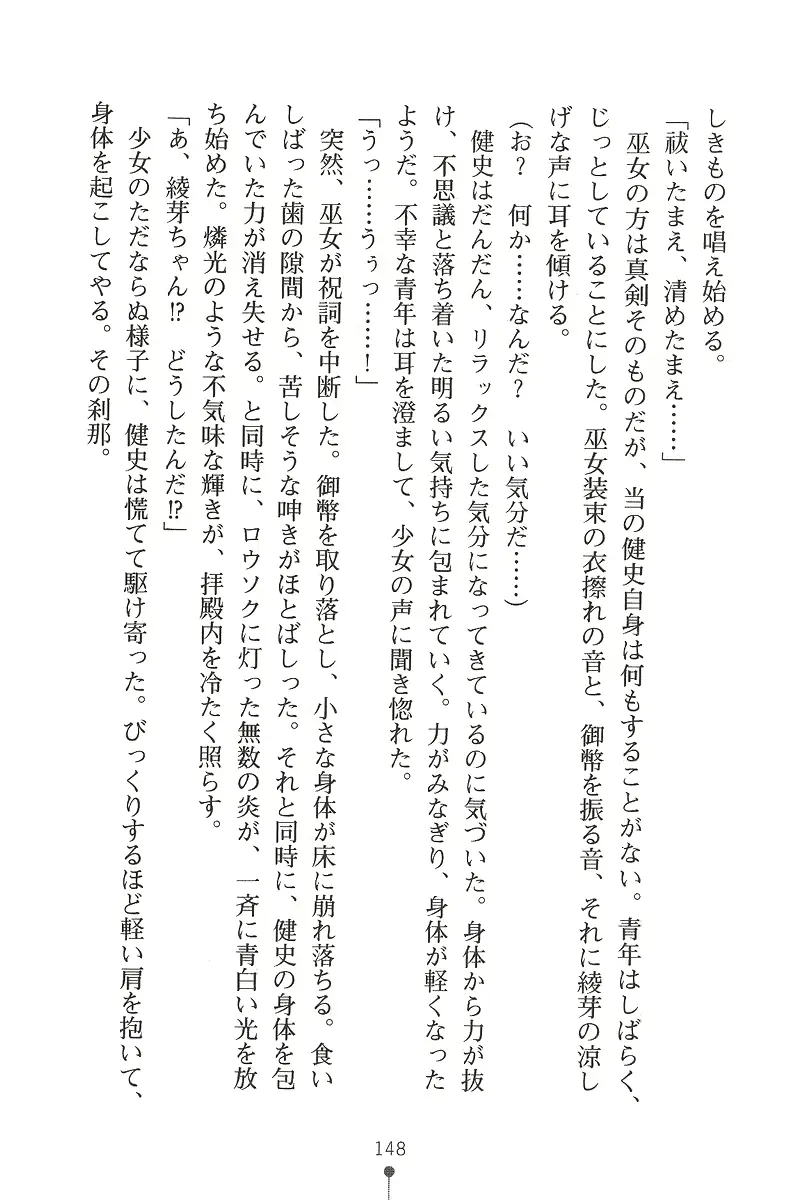 しきものを唱え始める。
「祓いたまえ、清めたまえ……」
巫女の方は真剣そのものだが、当の健史自身は何もすることがない。青年はしばらく、
じっとしていることにした。巫女装束の衣擦れの音と、御幣を振る音、それに綾芽の涼し
げな声に耳を傾ける。
（お？　何か……なんだ？　いい気分だ……）
健史はだんだん、リラックスした気分になってきているのに気づいた。身体から力が抜
け、不思議と落ち着いた明るい気持ちに包まれていく。力がみなぎり、身体が軽くなった
ようだ。不幸な青年は耳を澄まして、少女の声に聞き惚れた。
「うっ……うぅっ……！」
突然、巫女が祝詞を中断した。御幣を取り落とし、小さな身体が床に崩れ落ちる。食い
しばった歯の隙間から、苦しそうな呻きがほとばしった。それと同時に、健史の身体を包
んでいた力が消え失せる。と同時に、ロウソクに灯った無数の炎が、一斉に青白い光を放
ち始めた。燐光のような不気味な輝きが、拝殿内を冷たく照らす。
「あ、綾芽ちゃん!?　どうしたんだ!?」
少女のただならぬ様子に、健史は慌てて駆け寄った。びっくりするほど軽い肩を抱いて、
身体を起こしてやる。その刹那。
148